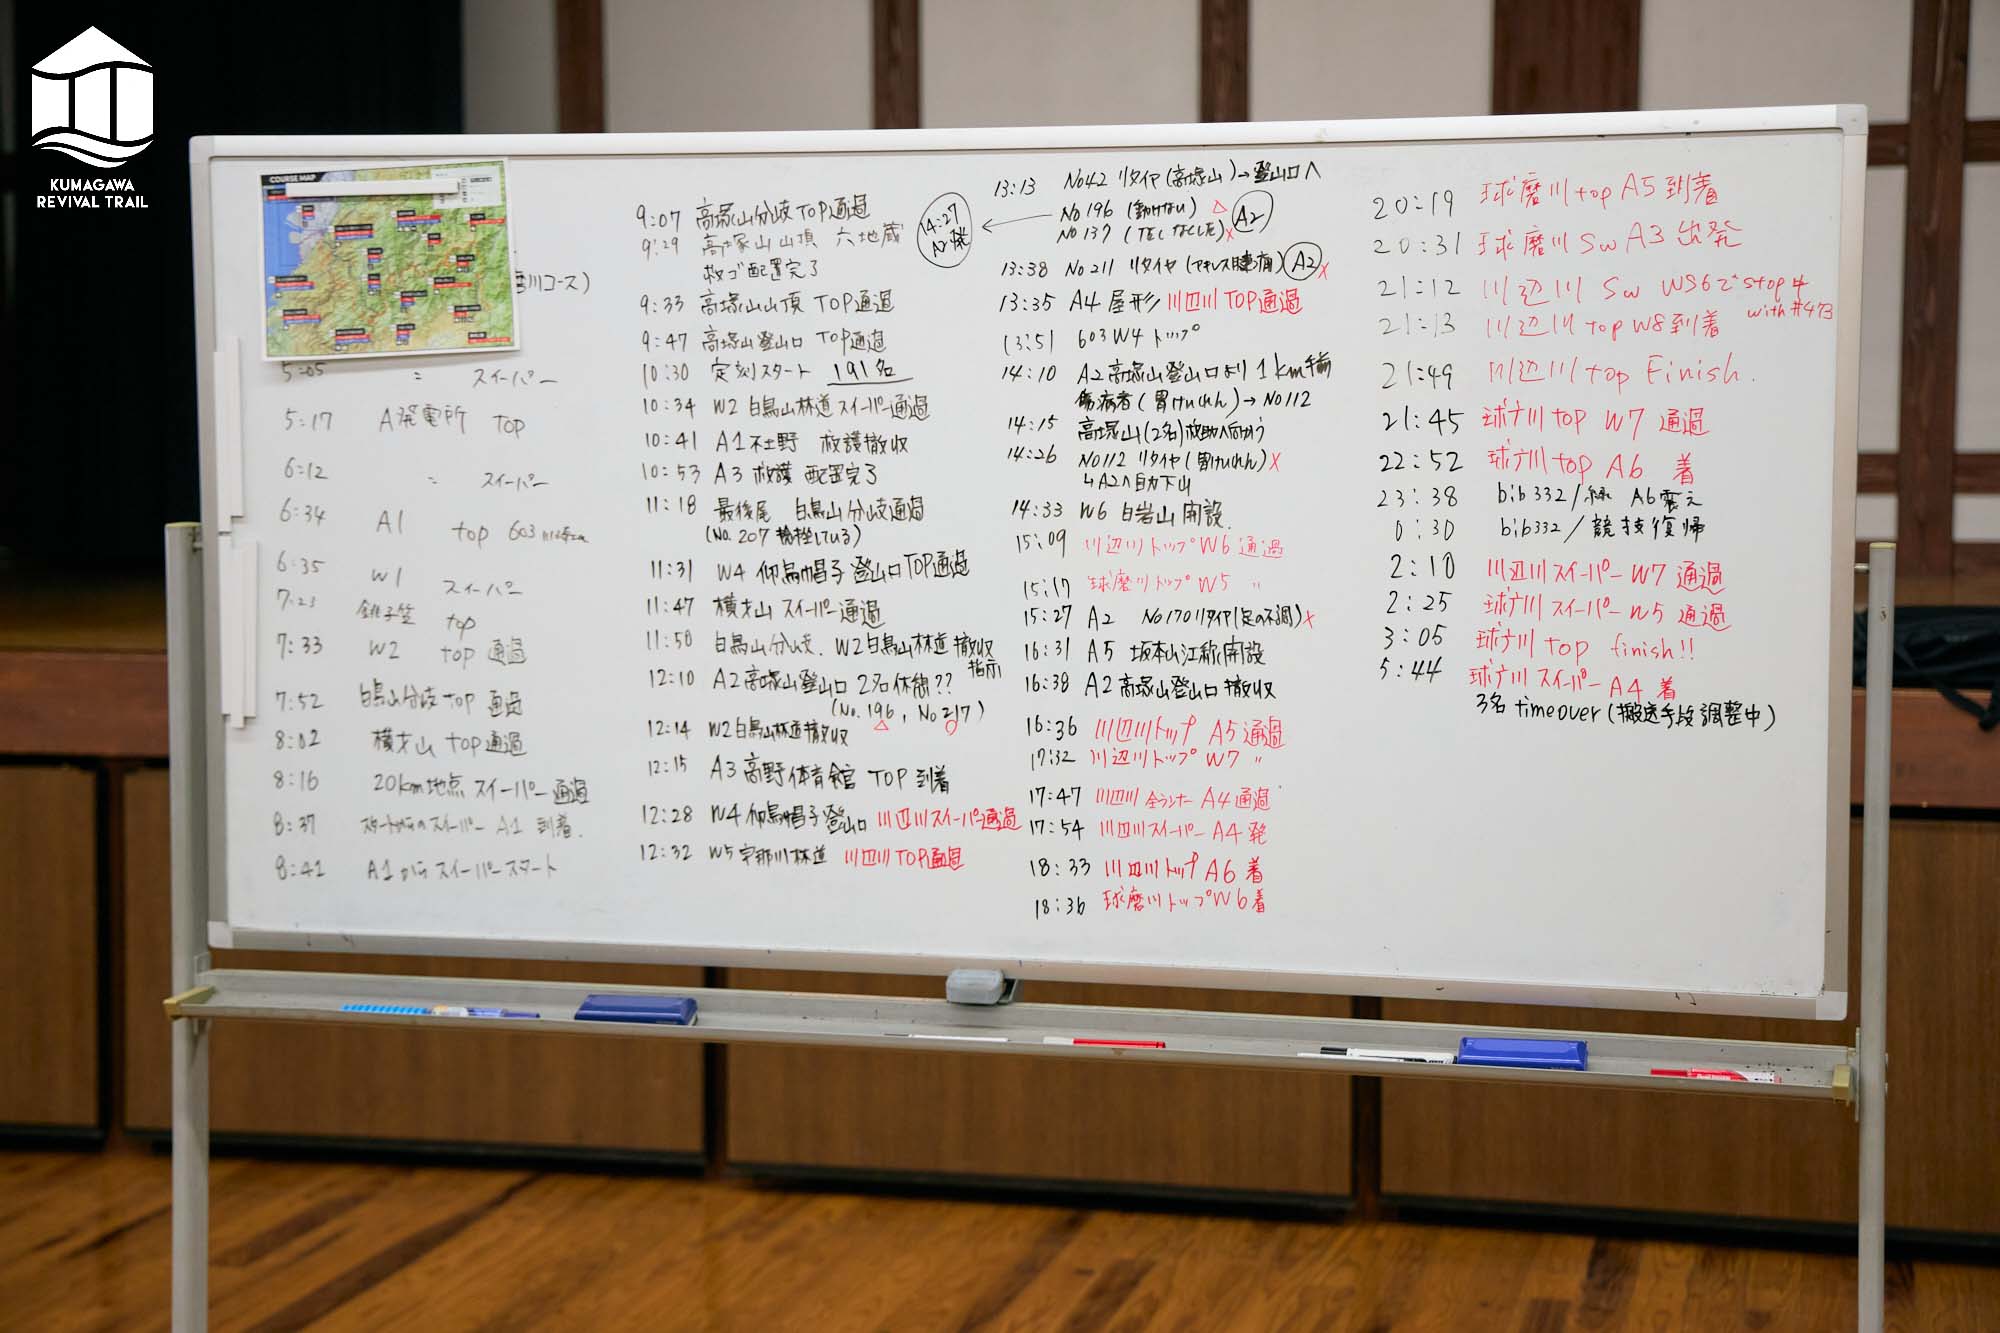 KUMAGAWA
REVIVAL TRAIL
COURSE MAP
川コース)
5:05 〃 スイーパー
5:17 A発電所 TOP
6:12 〃 スイーパー
6:34 A1 top 603
6:35 W1 スイーパー
7:23 銚子笠 top
7:33 W2 top 通過
7:52 白鳥山分岐 TOP 通過
8:02 横才山 TOP 通過
8:16 20km地点 スイーパー 通過
8:37 スタートからのスイーパー A1 到着.
8:41 A1から スイーパースタート
9:07 高塚山分岐 TOP通過
9:29 高塚山山頂 六地蔵
救ゴ配置完了
9:33 高塚山山頂 TOP通過
9:47 高塚山登山口 TOP通過
10:30 定刻スタート 191名
10:34 W2 白鳥山林道 スイーパー通過
10:41 A1 不土野 救護撤収
10:53 A3 救護 配置完了
11:18 最後尾 白鳥山分岐通過
(No. 207 捻挫している)
11:31 W4 仰烏帽子 登山口 TOP通過
11:47 横才山 スイーパー通過
11:50 白鳥山分岐. W2白鳥山林道 撤収
指示
12:10 A2高塚山登山口 2名休憩??
(No. 196, No217)
△ ○
12:14 W2白鳥山林道撤収
12:15 A3 高野体育館 TOP 到着
12:28 W4 仰烏帽子登山口 川辺川スイーパー通過
12:32 W5 宇那川林道 川辺川 TOP通過
14:27
A2発
13:13 No42 リタイヤ(高塚山)→登山口へ
No 196 (動けない) △ A2
No 137 ×
13:38 No 211 リタイヤ (アキレス腱痛) A2 ×
13:35 A4 屋形 川辺川 TOP通過
13:51 603 W4 トップ
14:10 A2 高塚山登山口より 1km手前
傷病者 (胃けいれん) → No112
14:15 高塚山(2名)救助へ向かう
14:26 No112 リタイヤ(胃けいれん) ×
↳A2へ自力下山
14:33 W6 白岩山 開設.
15:09 川辺川トップ W6 通過
15:17 球磨川トップ W5 〃
15:27 A2 No170リタイヤ(足の不調) ×
16:31 A5 坂本山江称開設
16:38 A2 高塚山登山口 撤収
16:36 川辺川トップ A5通過
17:32 川辺川トップ W7 〃
17:47 川辺川 全ランナー A4通過
17:54 川辺川スイーパー A4 発
18:33 川辺川トップ A6 着
18:36 球磨川トップ W6着
20:19 球磨川 top A5 到着
20:31 球磨川 Sw A3 出発
21:12 川辺川 Sw WS6で stop中
with #473
21:13 川辺川 top W8到着
21:49 川辺川 top Finish.
21:45 球磨川 top W7 通過
22:52 球磨川 top A6 着
23:38 bib 332 / A6
0:30 bib332 / 競技復帰
2:10 川辺川 スイーパー W7 通過
2:25 球磨川 スイーパー W5 通過
3:05 球磨川 top finish!!
5:44 球磨川 スイーパー A4 着
3名 timeover (搬送手段調整中)